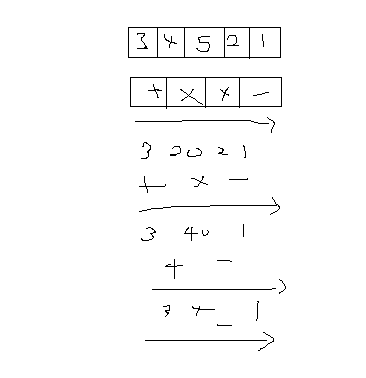 3 4 5 2 1
+ × × -
3 20 2 1
+ × -
3 40 1
+ -
1